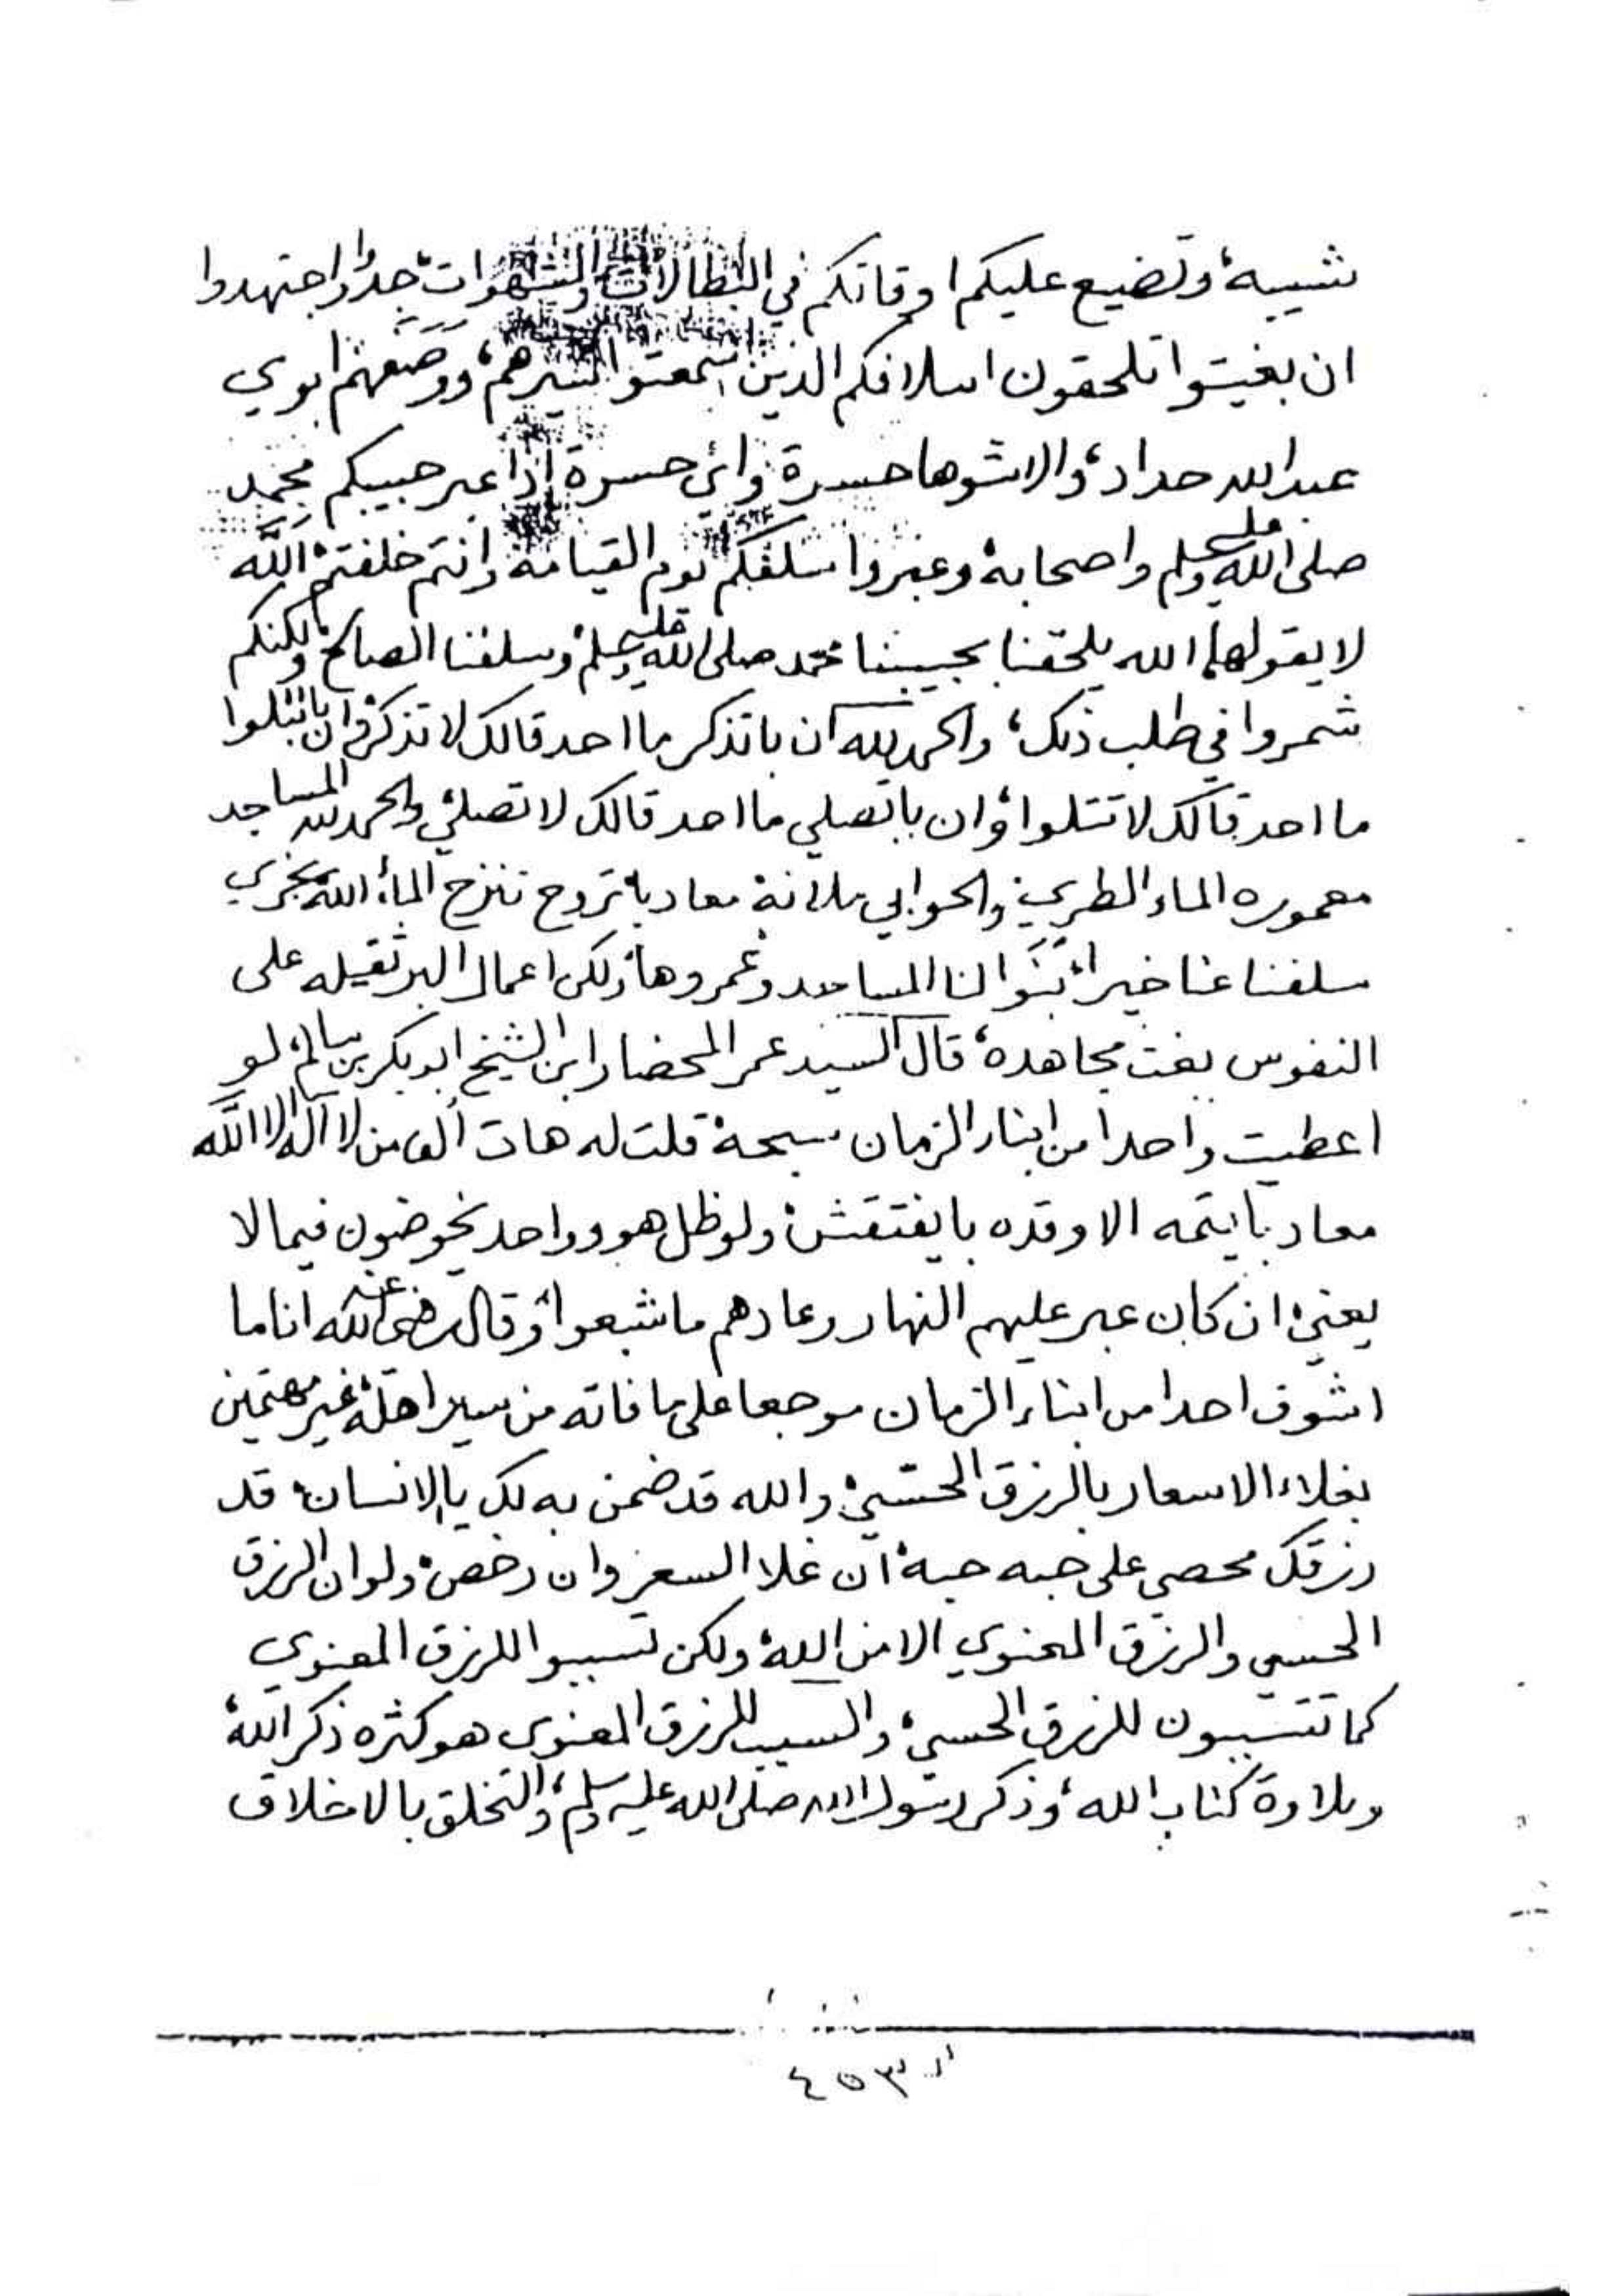 شيبه، وتضيع عليكم اوقاتكم في البطالات والشهوات، جدوا واجتهدوا
ان بغيتوا تلحقون اسلافكم الذين سمعتوا سيرهم، ووصفهم ابوي
عبدالله حداد، والا شوها حسرة وأي حسرة إذا عبر حبيبكم محمد
صلى الله عليه وسلم واصحابه وعبروا سلفكم يوم القيامة وانتم خلفتم، الله
لا يقولها، الله يلحقنا بحبيبنا محمد صلى الله عليه وسلم وسلفنا الصالح، ولكنكم
شمروا في طلب ذلك، والحمدلله ان باتذكر ما احد قالك لا تذكر، وان باتتلوا
ما احد قالك لا تتلوا، وان باتصلي ما احد قالك لا تصلي، والحمدلله المساجد
معموره الماء الطري، والجوابي ملانة معاد باتروح تنزح الماء، الله يجزي
سلفنا عنا خيرا، بنوا لنا المساجد وعمروها، ولكن اعمال البر ثقيله على
النفوس بغت مجاهده، قال السيد عمر المحضار ابن الشيخ ابوبكر بن سالم، لو
اعطيت واحدا من ابناء الزمان سبحة قلت له هات ألف من لا اله الا الله
معاد بايتمه الا وقده بايفتقش، ولو ظل هو وواحد يخوضون فيما لا
يعني، ان كان عبر عليهم النهار وعادهم ما شبعوا، وقال رضي الله عنه انا ما
اشوف احدا من ابناء الزمان موجعا على ما فاته من سير اهله، غير مهتمين
بغلاء الاسعار بالرزق الحسي، والله قد ضمن به لك يالانسان، قد
رزقك محصي على حبه حبه، ان غلا السعر وان رخص، ولو ان الرزق
الحسي والرزق المعنوي الا من الله، ولكن تسببوا للرزق المعنوي
كما تتسببون للرزق الحسي، والسبب للرزق المعنوي هو كثره ذكر الله،
وتلاوة كتاب الله، وذكر رسول الله صلى الله عليه وسلم، والتخلق بالاخلاق
٤٥٣